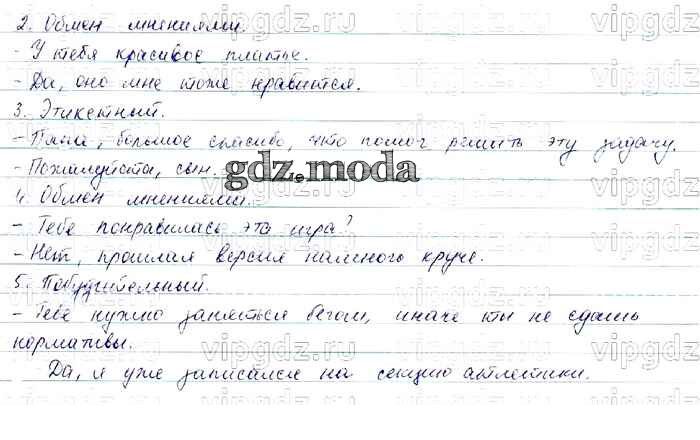 2. Обмен мнениями.
- У тебя красивое платье.
- Да, оно мне тоже нравится.
3. Этикетный.
- Папа, большое спасибо, что помог решить эту задачу.
- Пожалуйста, сын.
gdz.moda
4. Обмен мнениями.
- Тебе понравилась эта игра?
- Нет, прошлая версия намного круче.
5. Побудительный.
- Тебе нужно заняться бегом, иначе ты не сдашь
нормативы.
Да, я уже записался на секцию атлетики.
vipgdz.ru